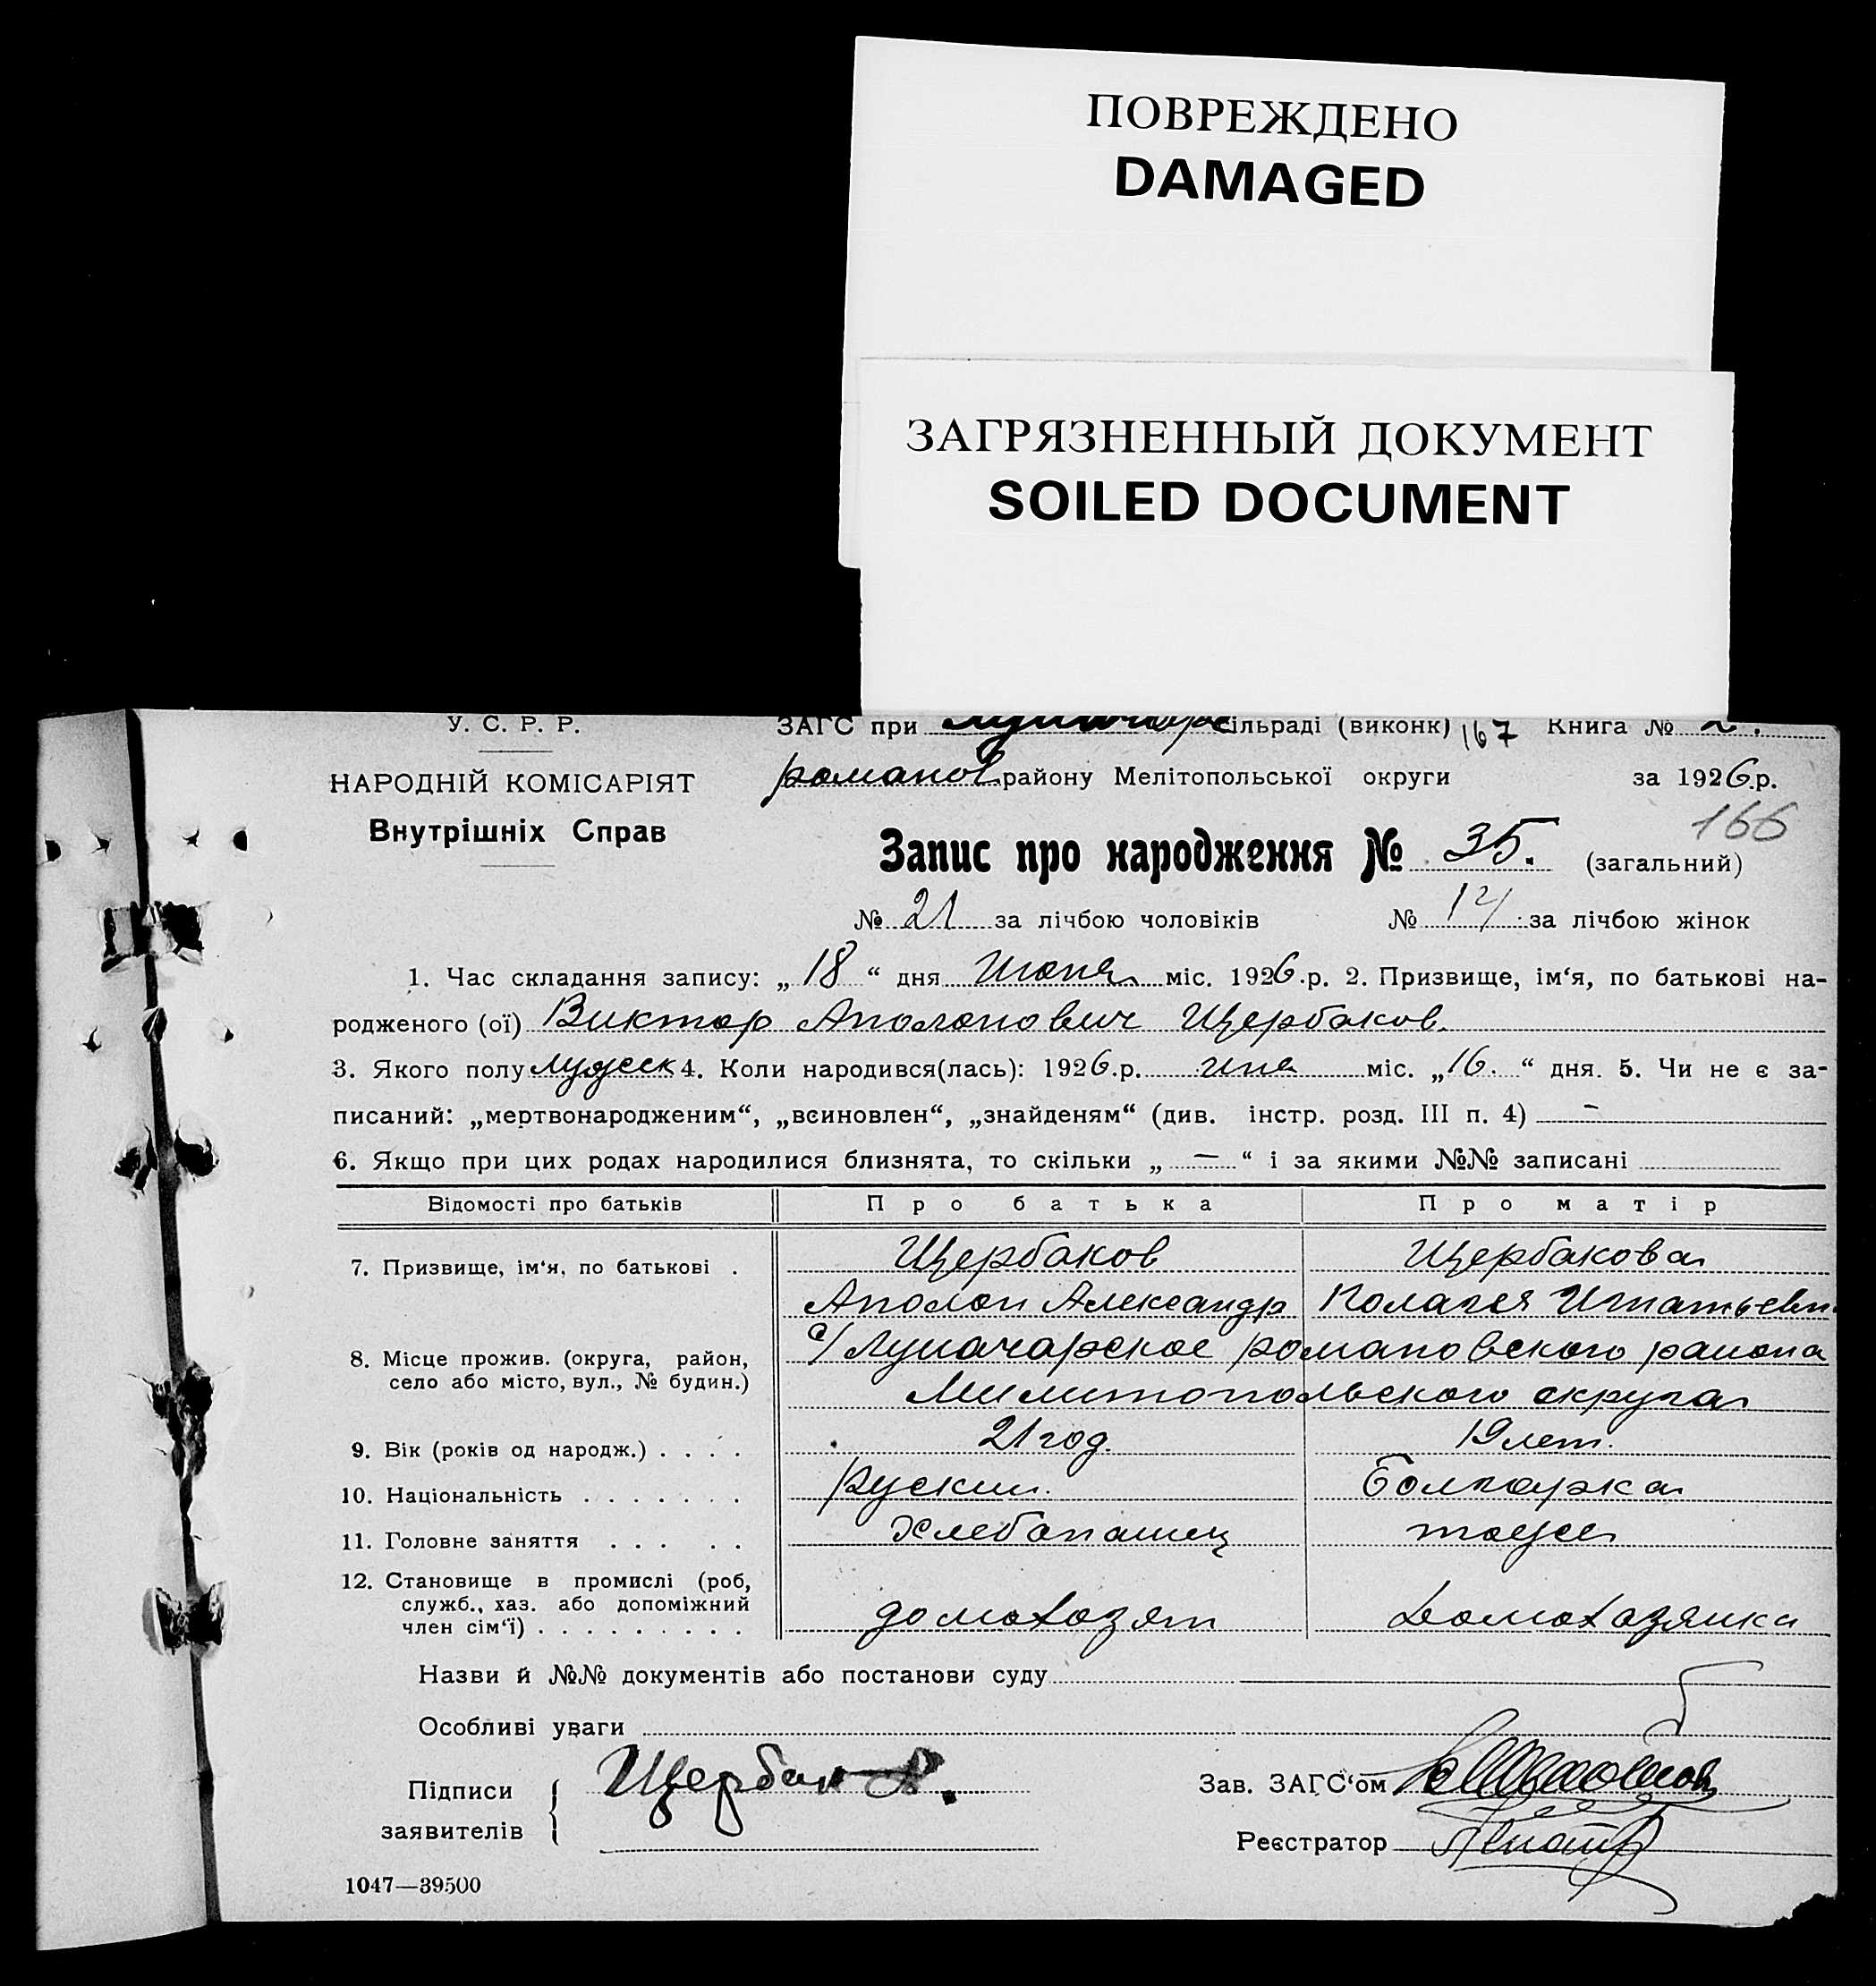 ПОВРЕЖДЕНО
DAMAGED
ЗАГРЯЗНЕННЫЙ ДОКУМЕНТ
SOILED DOCUMENT
У. С. Р. Р.
ЗАГС при сільраді (виконк) 167 Книга № 2.
НАРОДНІЙ КОМІСАРІЯТ
романов району Мелітопольської округи за 1926 р.
Внутрішніх Справ
166
Запис про народження № 35. (загальний)
№ 21 за лічбою чоловіків № 14 за лічбою жінок
1. Час складання запису: „ 18 “ дня Июня міс. 1926 .р. 2. Призвище, ім‘я, по батькові на-
родженого (ої) Виктор Аполонович Щербаков.
3. Якого полу мужеск 4. Коли народився(лась): 1926.р. міс. „ 16. “ дня. 5. Чи не є за-
писаний: „мертвонародженим“, „всиновлен“, „знайденям“ (див. інстр. розд. III п. 4) —
6. Якщо при цих родах народилися близнята, то скільки „ — “ і за якими №№ записані
Відомості про батьків Про батька Про матір
7. Призвище, ім‘я, по батькові . Щербаков Щербакова
Аполон Александр Полагея Игнатьевн
8. Місце прожив. (округа, район, с/ Луначарское романовского района
село або місто, вул., № будин.) Милитопольского округа
9. Вік (років од народж.) . . . . 21 год. 19 лет.
10. Національність . . . . . . . Руский. Болгарка
11. Головне заняття . . . . . Хлебопашец тоже
12. Становище в промислі (роб,
служб., хаз. або допоміжний
член сім‘ї) . . . . . . . . . домохозяин Домохазяика
Назви й №№ документів або постанови суду
Особливі уваги
Підписи Щербак Зав. ЗАГС‘ом
заявителів Реєстратор
1047—39500